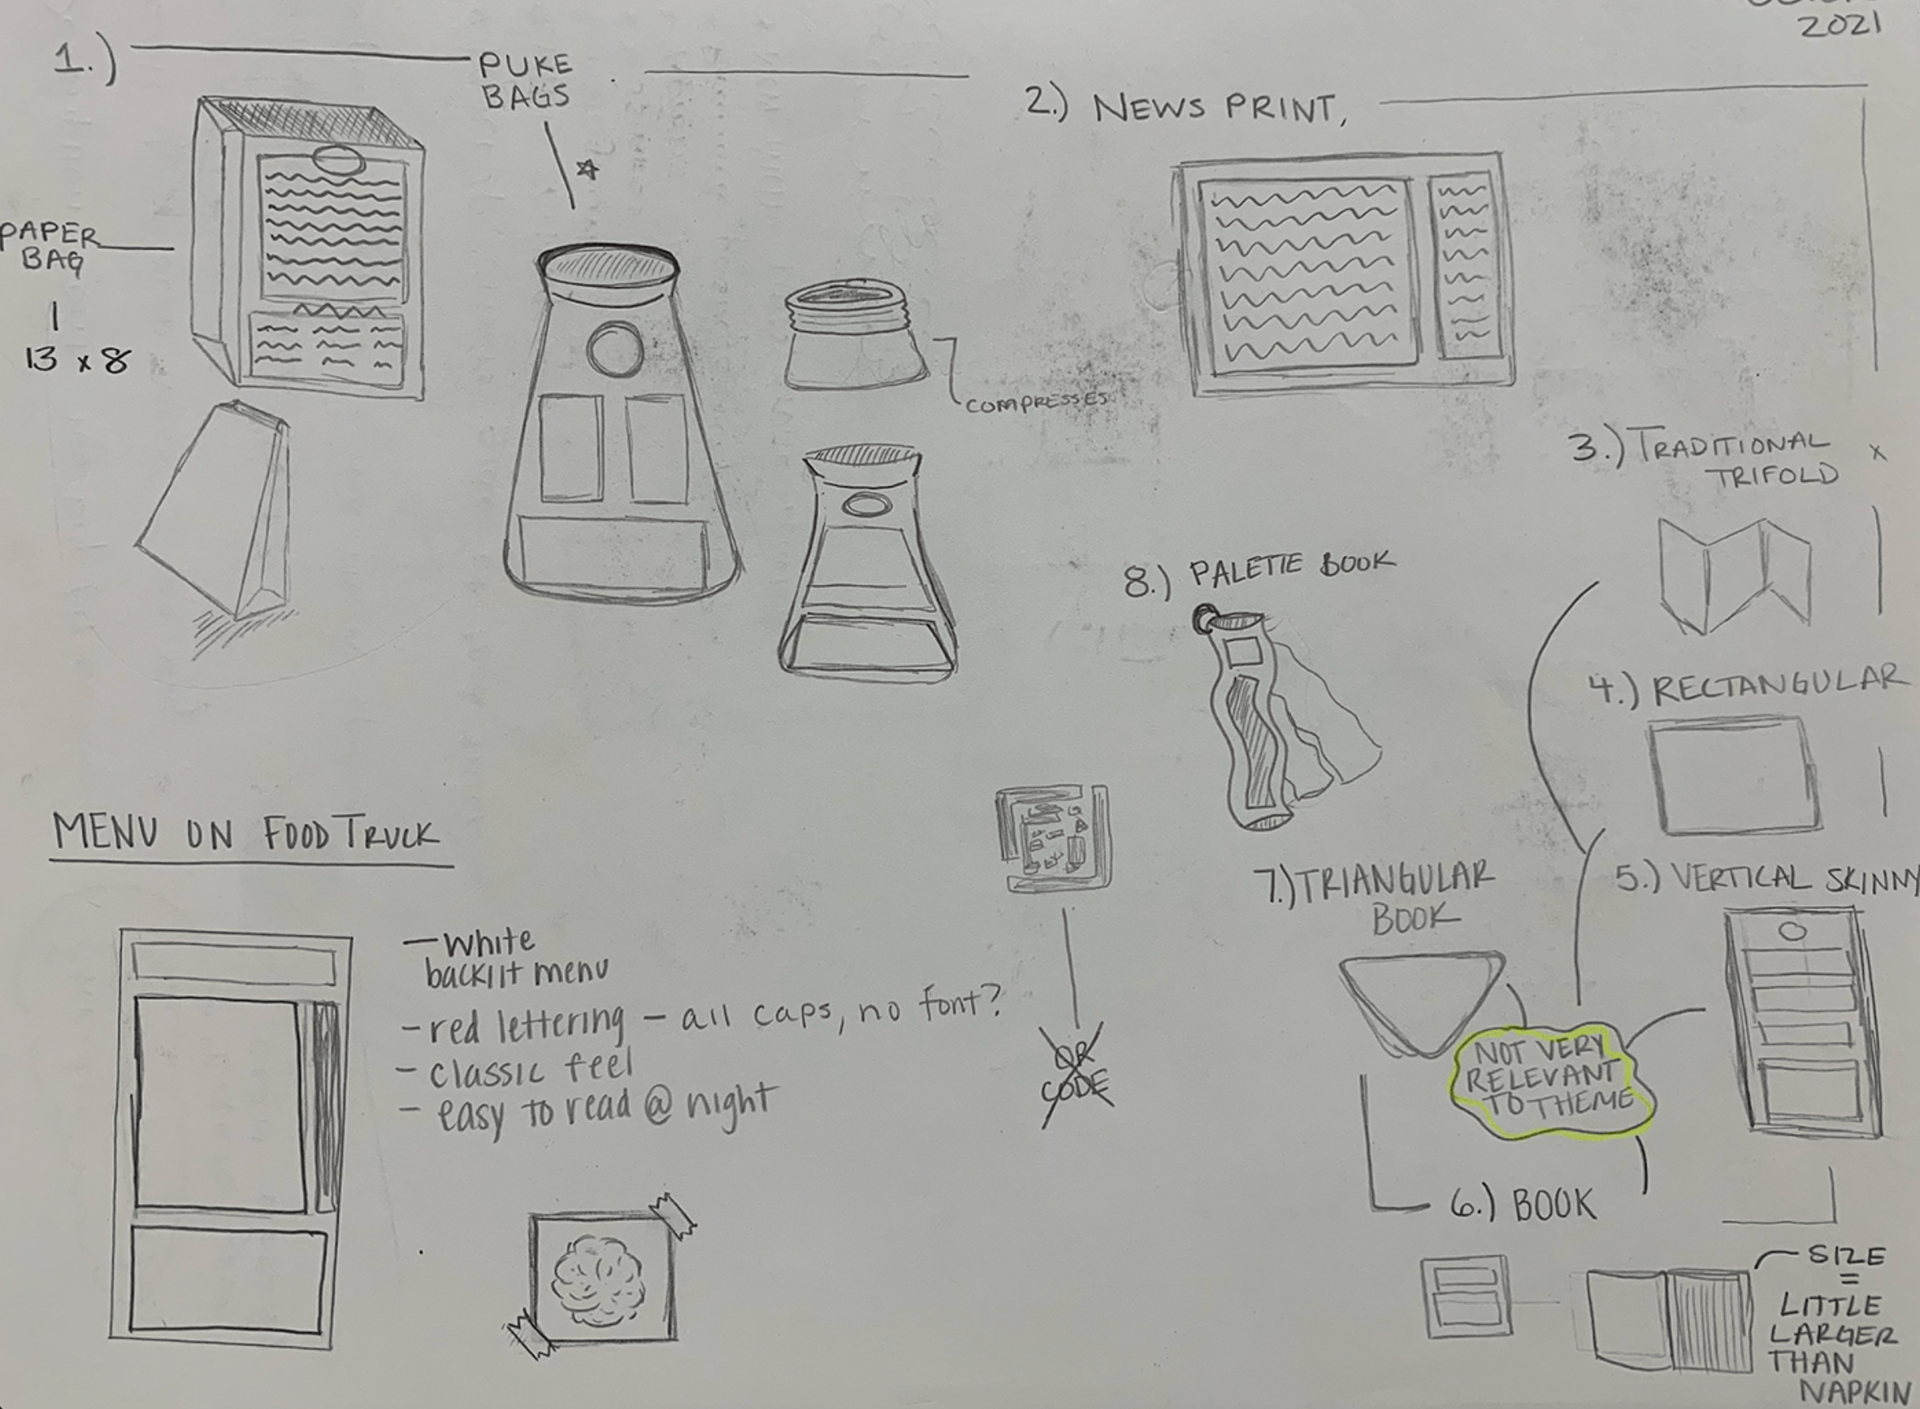 2021
1.)
PUKE
BAGS
PAPER
BAG
13 x 8
COMPRESSES
2.) NEWS PRINT,
3.) TRADITIONAL
TRIFOLD
x
4.) RECTANGULAR
5.) VERTICAL SKINNY
8.) PALETTE BOOK
7.) TRIANGULAR
BOOK
NOT VERY
RELEVANT
TO THEME
6.) BOOK
SIZE
=
LITTLE
LARGER
THAN
NAPKIN
QR
CODE
MENU ON FOOD TRUCK
- white
backlit menu
- red lettering - all caps, no font?
- classic feel
- easy to read @ night